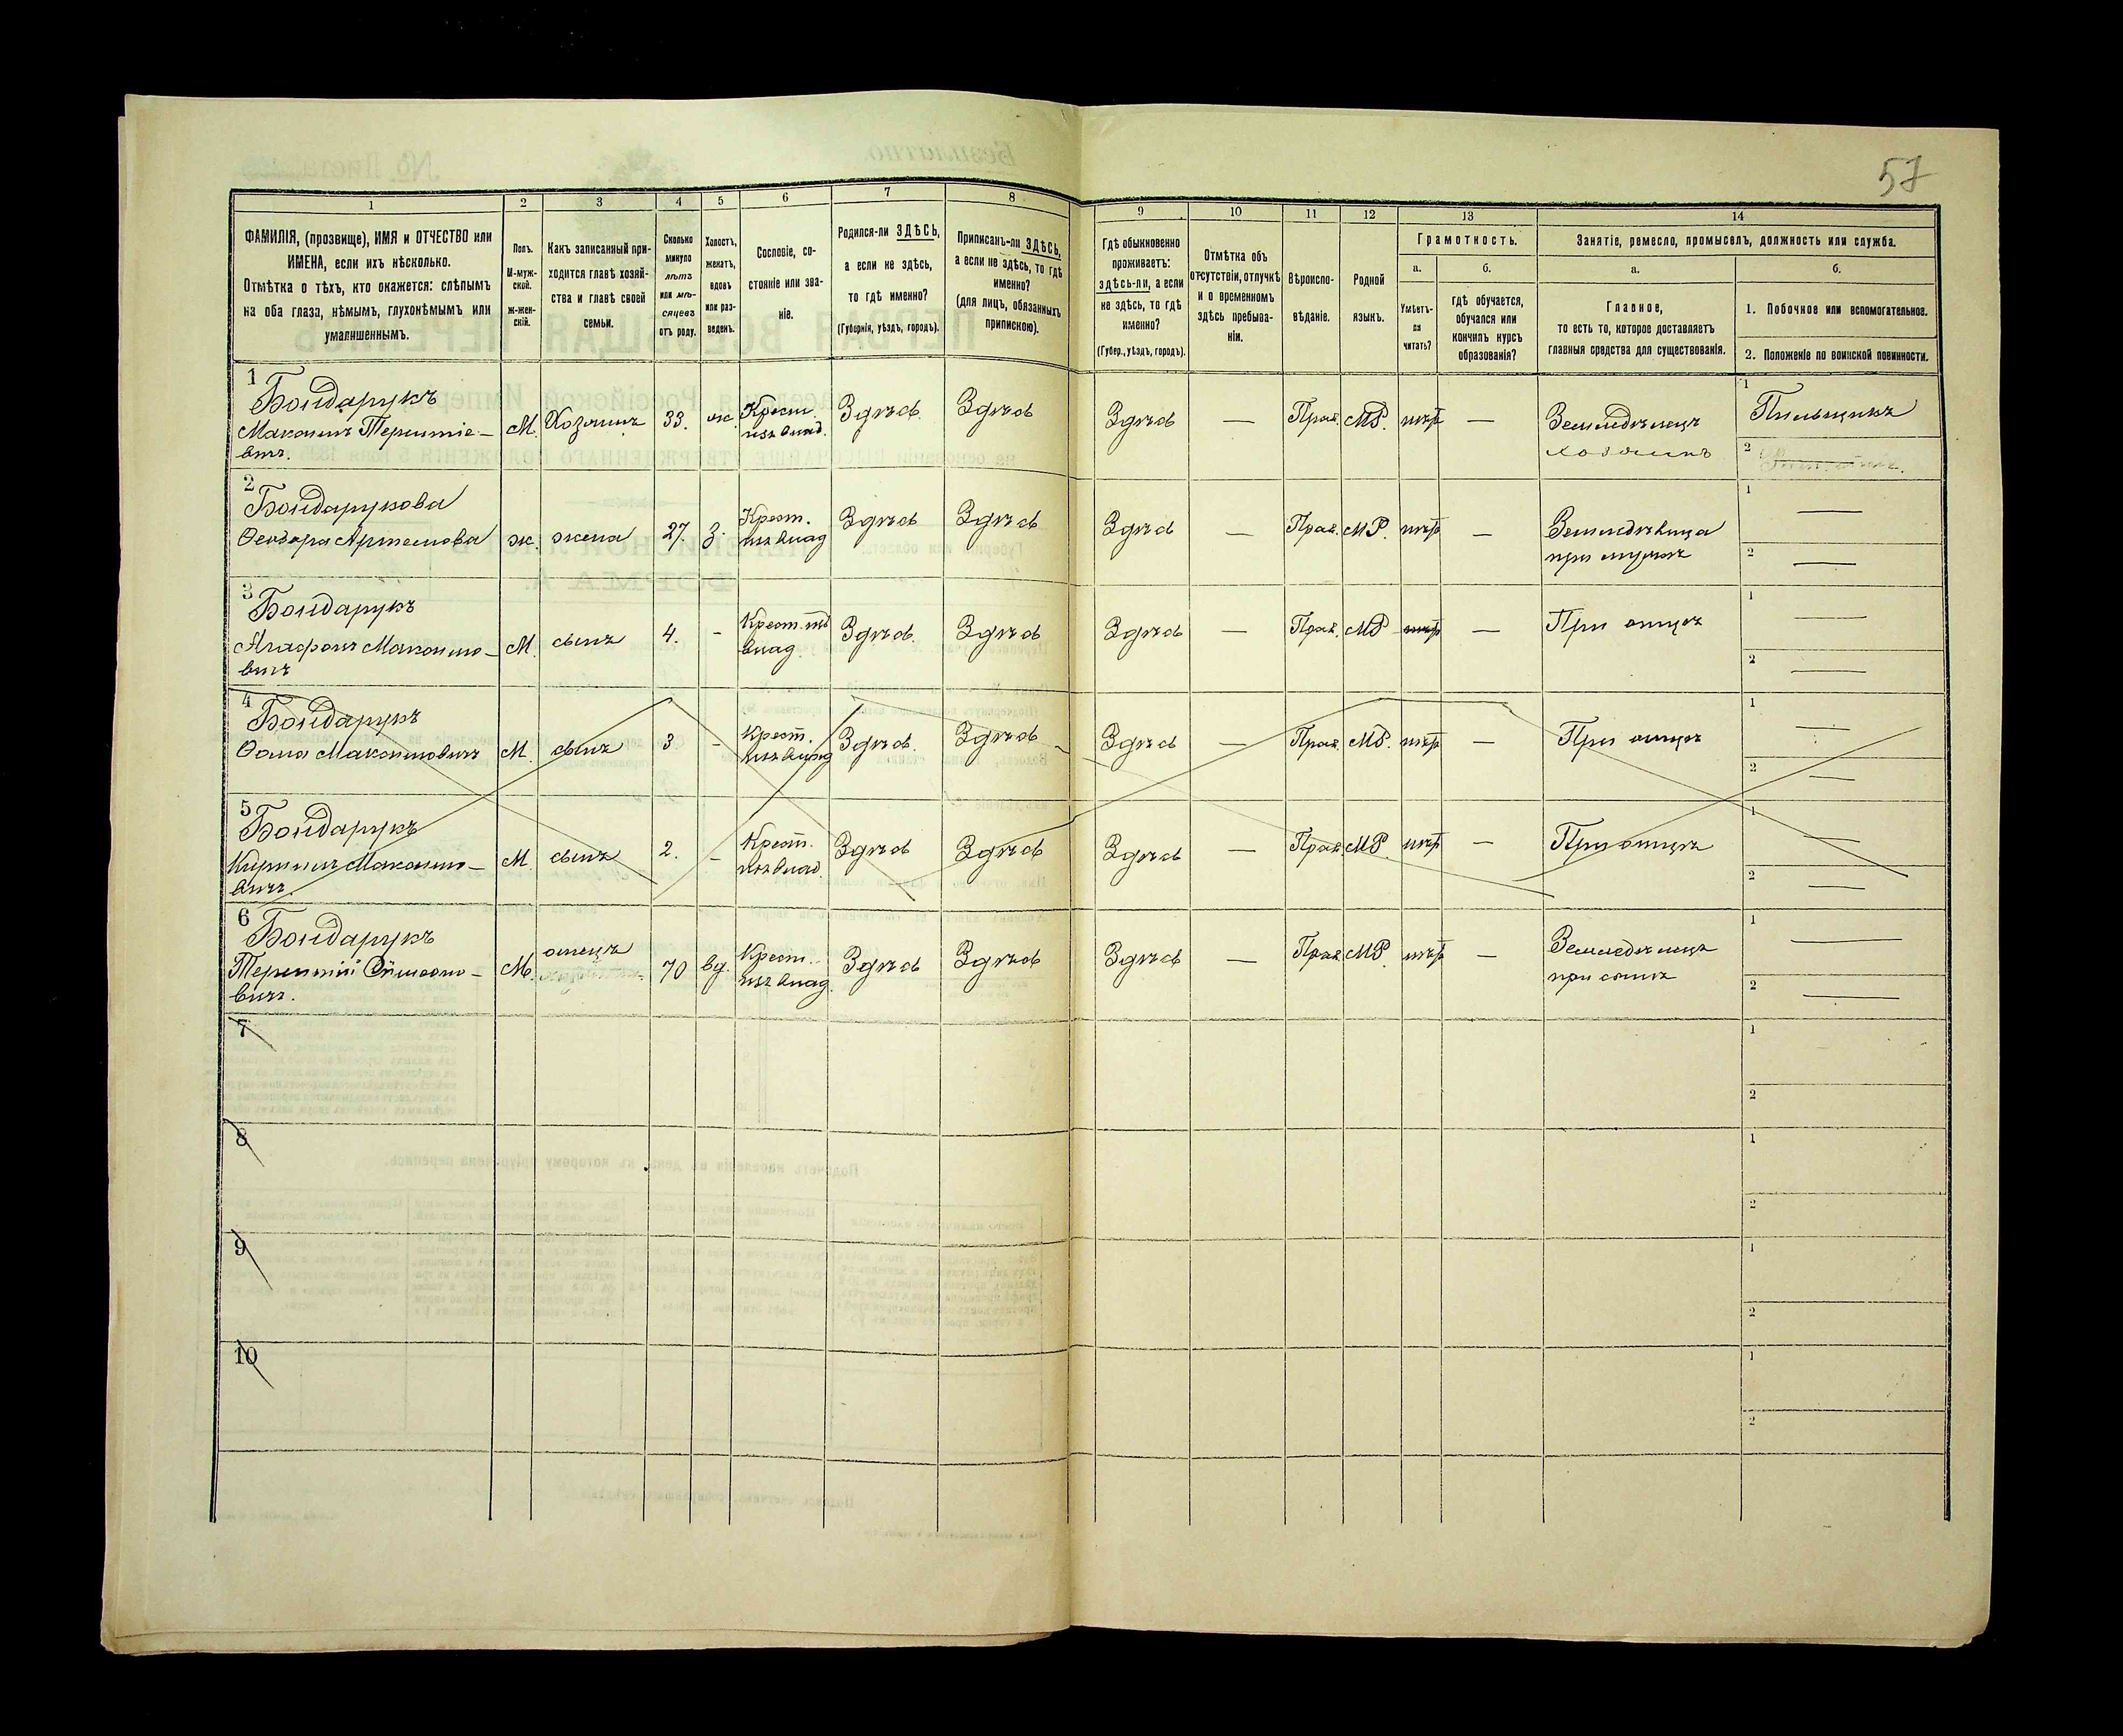 57
1 2 3 4 5 6 7 8 9 10 11 12 13 14
ФАМИЛІЯ, (прозвище), ИМЯ и ОТЧЕСТВО или
ИМЕНА, если ихъ нѣсколько.
Отмѣтка о тѣхъ, кто окажется: слѣпымъ
на оба глаза, нѣмымъ, глухонѣмымъ или
умалишеннымъ.
Полъ.
М-муж-
ской.
ж-жен-
скій.
Какъ записанный при-
ходится главѣ хозяй-
ства и главѣ своей
семьи.
Сколько
минуло
лѣтъ
или мѣ-
сяцевъ
отъ роду.
Холостъ,
женатъ,
вдовъ
или раз-
веденъ.
Сословіе, со-
стояніе или зва-
ніе.
Родился-ли ЗДѢСЬ,
а если не здѣсь,
то гдѣ именно?
(Губернія, уѣздъ, городъ).
Приписанъ-ли ЗДѢСЬ,
а если не здѣсь, то гдѣ
именно?
(для лицъ, обязанныхъ
припискою).
Гдѣ обыкновенно
проживаетъ:
здѣсь-ли, а если
не здѣсь, то гдѣ
именно?
(Губер., уѣздъ, городъ).
Отмѣтка объ
отсутствіи, отлучкѣ
и о временномъ
здѣсь пребыва-
ніи.
Вѣроиспо-
вѣданіе.
Родной
языкъ.
Грамотность.
а.
Умѣетъ-
ли
читать?
б.
гдѣ обучается,
обучался или
кончилъ курсъ
образованія?
Занятіе, ремесло, промыселъ, должность или служба.
а.
Главное,
то есть то, которое доставляетъ
главныя средства для существованія.
б.
1. Побочное или вспомогательное.
2. Положеніе по воинской повинности.
1
Бондарукъ
Максимъ Терентіе-
вичъ.
М. Хозяинъ 33. ж. Крест.
изъ влад.
Здѣсь. Здѣсь Здѣсь — Прав. МР. нѣтъ — Земледѣлецъ
хозяинъ
1 Пильщикъ
2
2
Бондарукова
Ѳеодора Артемова ж. жена 27. З. Крест.
изъ влад
Здѣсь Здѣсь Здѣсь — Прав. МР. нѣтъ — Земледѣлица
при мужѣ
1 —
2 —
3
Бондарукъ
Агафонъ Максимо-
вичъ
М. сынъ 4. - Крест. изъ
влад.
Здѣсь. Здѣсь Здѣсь — Прав. МР нѣтъ — При отцѣ
1 —
2 —
4
Бондарукъ
Ѳома Максимовичъ М. сынъ 3 - Крест.
изъ влад
Здѣсь. Здѣсь Здѣсь — Прав. МР. нѣтъ — При отцѣ
1 —
2 —
5
Бондарукъ
Кириллъ Максимо-
вичъ.
М. сынъ 2. - Крест.
изъ влад.
Здѣсь Здѣсь Здѣсь — Прав. МР. нѣтъ — При отцѣ
1 —
2 —
6
Бондарукъ
Терентій
вичъ.
М. отецъ 70 вд. Крест.
изъ влад.
Здѣсь Здѣсь Здѣсь — Прав МР. нѣтъ — Земледѣлецъ
при сынѣ
1 —
2 —
7
1
2
8
1
2
9
1
2
10
1
2